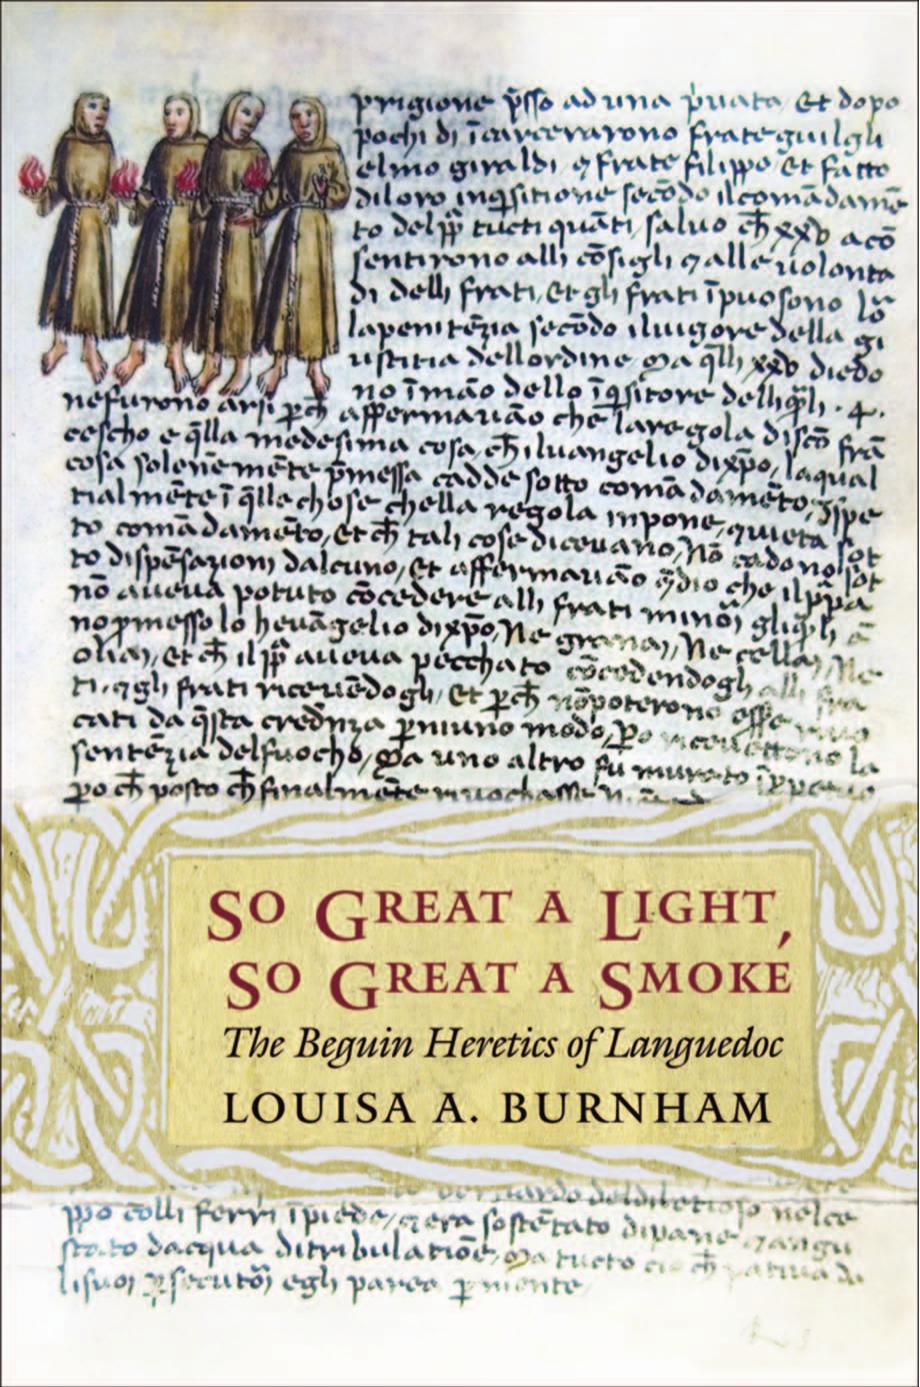 prigione p̄sso ad una p̄uata, Et dopo
pochi di īcarcerarono frate guilgli
elmo giraldi, ⁊ frate filippo Et fatto
di loro inq̄sitione secōdo il comādamē
to del pp̄ tucti quāti, salvo ch̄ xxv acō
sentirono alli cōsigli ⁊ alle uolonta
di delli frati, Et gli frati īpuosono lo
la penitēzia secōdo il uigore della gi
ustitia dell ordine, Ma q̄lli xxv diedo
no ī māo dello īq̄sitore delli q̄li .4.
ne furono arsi p̄ch̄ affermauāo che la regola di scō frā
cescho e q̄lla medesima cosa, ch̄ il uangelio di xp̄o, la qual
cosa solenēmēte p̄messa cadde sotto comādamēto,
tialmēte ī q̄lle chose che lla regola inpone,
to comādamēto, Et ch̄ tali cose diceuano, Nō cadono sot
to dispēsazioni dalcuno, Et affermauāo
nō aueua potuto cōcedere alli frati minōi gli q̄li
no p̄messo lo heuāgelio di xp̄o, Ne granai, Ne cellai, Ne
oliai, Et ch̄ il pp̄ aueua pecchato cōcedendogli alli fra
ti, ⁊ gli frati riceuēdogli, Et p̄ch̄ nō poterono esse
cati da q̄sta credēza p̄ niuno modo, p̄o riceuettono la
sentēzia del fuocho, Ma uno altro fu murato
p̄o ch̄ posto ch̄ finalmēte
SO GREAT A LIGHT,
SO GREAT A SMOKE
The Beguin Heretics of Languedoc
LOUISA A. BURNHAM
ppo colli ferri ī piede, ⁊ era sostētato di pane ⁊ dangu
stato dacqua di tribulatiōe, Ma tucto cio ch̄ patiua da
li suoi p̄secutōi egli parea p̄ niente